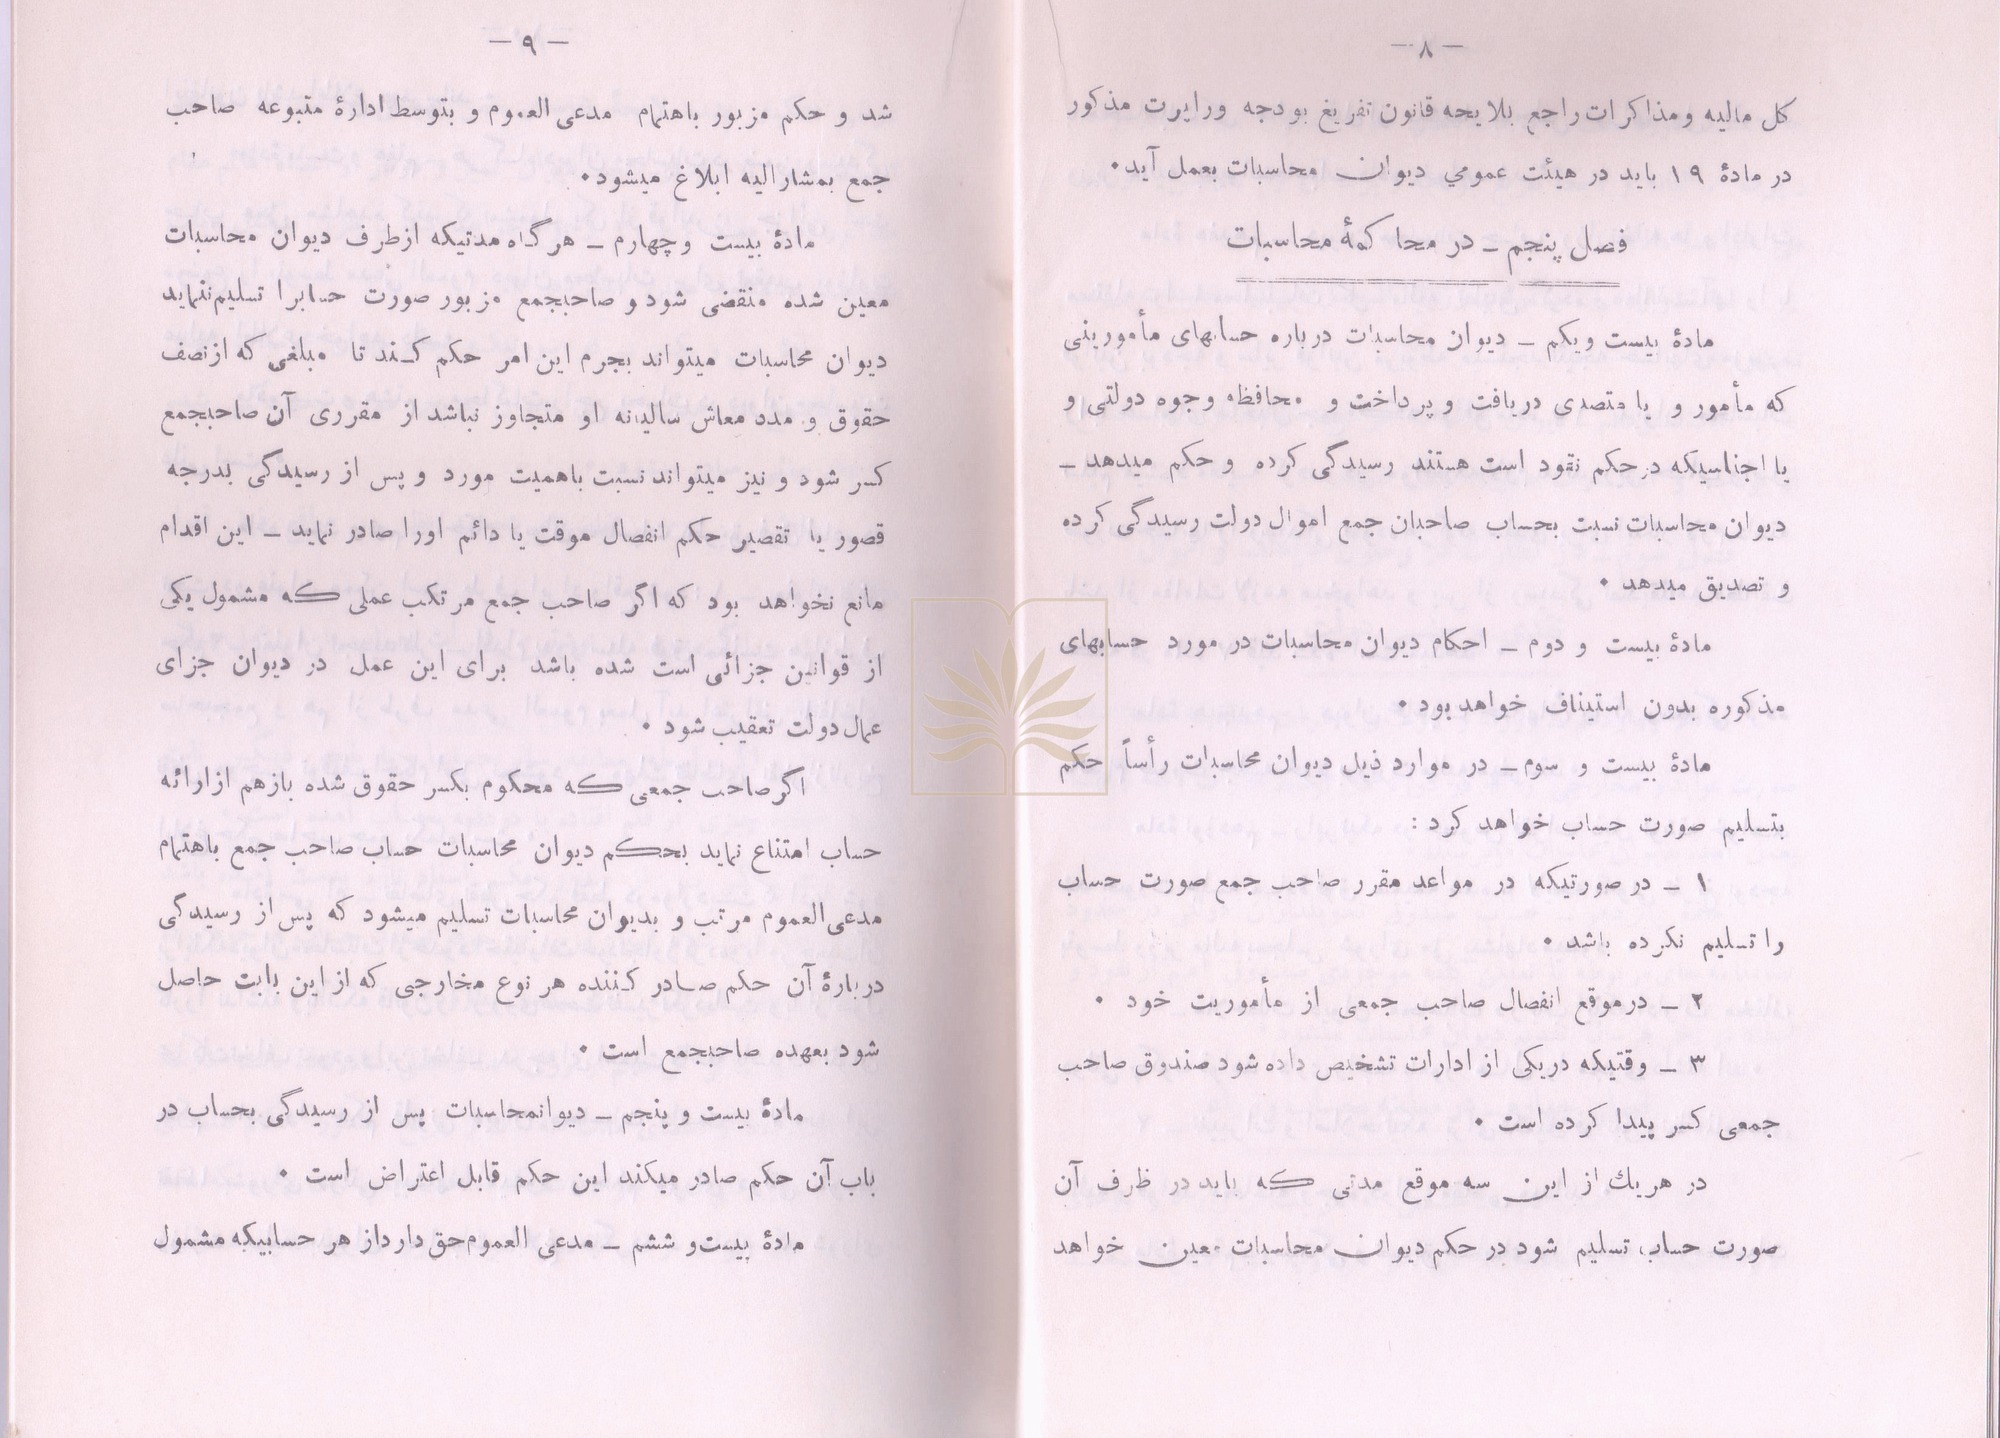 — ۸ —
کل مالیه و مذاکرات راجع بلایحه قانون تفریغ بودجه وراپرت مذکور
در مادهٔ ۱۹ باید در هیئت عمومی دیوان محاسبات بعمل آید.
فصل پنجم ـ در محاکمهٔ محاسبات
مادهٔ بیست ویکم ـ دیوان محاسبات درباره حسابهای مأمورینی
که مأمور و یا متصدی دریافت و پرداخت و محافظه وجوه دولتی و
یا اجناسیکه در حکم نقود است هستند رسیدگی کرده و حکم میدهد ـ
دیوان محاسبات نسبت بحساب صاحبان جمع اموال دولت رسیدگی کرده
و تصدیق میدهد .
مادهٔ بیست و دوم ـ احکام دیوان محاسبات در مورد حسابهای
مذکوره بدون استیناف خواهد بود .
مادهٔ بیست و سوم ـ در موارد ذیل دیوان محاسبات رأساً حکم
بتسلیم صورت حساب خواهد کرد :
۱ ـ در صورتیکه در مواعد مقرر صاحب جمع صورت حساب
را تسلیم نکرده باشد .
۲ ـ درموقع انفصال صاحب جمعی از مأموریت خود .
۳ ـ وقتیکه دریکی از ادارات تشخیص داده شود صندوق صاحب
جمعی کسر پیدا کرده است .
در هریك از این سه موقع مدتی که باید در ظرف آن
صورت حساب تسلیم شود در حکم دیوان محاسبات معین خواهد
— ۹ —
شد و حکم مزبور باهتمام مدعی العموم و بتوسط ادارهٔ متبوعه صاحب
جمع بمشارالیه ابلاغ میشود.
مادهٔ بیست وچهارم ـ هرگاه مدتیکه ازطرف دیوان محاسبات
معین شده منقضی شود و صاحبجمع مزبور صورت حسابرا تسلیم ننماید
دیوان محاسبات میتواند بجرم این امر حکم کند تا مبلغی که از نصف
حقوق و مدد معاش سالیانه او متجاوز نباشد از مقرری آن صاحبجمع
کسر شود و نیز میتواند نسبت باهمیت مورد و پس از رسیدگی بدرجه
قصور یا تقصیر حکم انفصال موقت یا دائم اورا صادر نماید ـ این اقدام
مانع نخواهد بود که اگر صاحب جمع مرتکب عملی که مشمول یکی
از قوانین جزائی است شده باشد برای این عمل در دیوان جزای
عمال دولت تعقیب شود .
اگر صاحب جمعی که محکوم بکسر حقوق شده بازهم ازارائه
حساب امتناع نماید بحکم دیوان محاسبات حساب صاحب جمع باهتمام
مدعی‌العموم مرتب و بدیوان محاسبات تسلیم میشود که پس از رسیدگی
دربارهٔ آن حکم صادر کننده هر نوع مخارجی که از این بابت حاصل
شود بعهده صاحبجمع است .
مادهٔ بیست و پنجم ـ دیوانمحاسبات پس از رسیدگی بحساب در
باب آن حکم صادر میکند این حکم قابل اعتراض است .
مادهٔ بیست‌و ششم ـ مدعی العموم حق دارد از هر حسابیکه مشمول